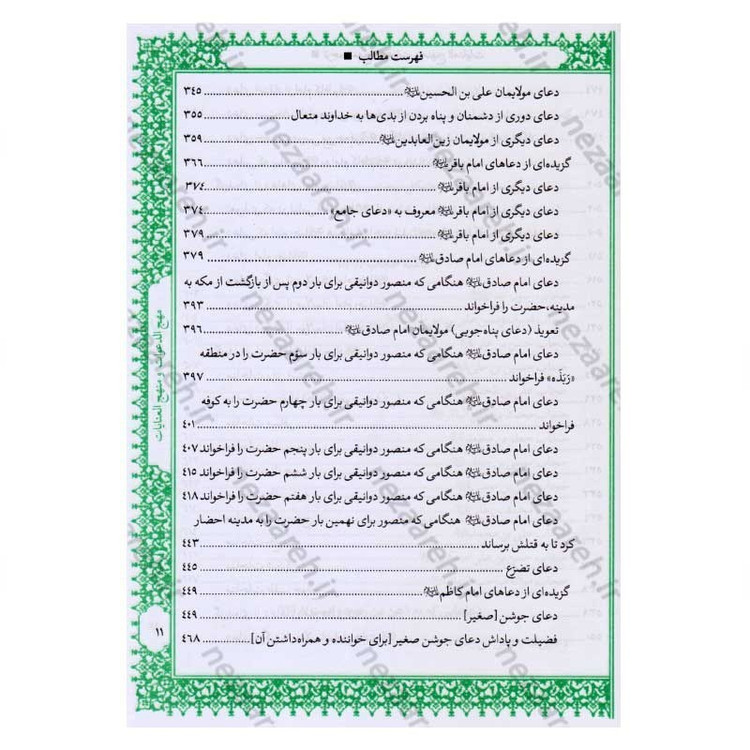 فهرست مطالب ■
دعای مولایمان علی بن الحسین ۳۴۵
دعای دوری از دشمنان و پناه بردن از بدی‌ها به خداوند متعال ۳۵۵
دعای دیگری از مولایمان زین‌العابدین ۳۵۹
گزیده‌ای از دعاهای امام باقر ۳۶۶
دعای دیگری از امام باقر ۳۷۴
دعای دیگری از امام باقر معروف به «دعای جامع» ۳۷۴
دعای دیگری از امام باقر ۳۷۹
گزیده‌ای از دعاهای امام صادق ۳۷۹
دعای امام صادق هنگامی که منصور دوانیقی برای بار دوم پس از بازگشت از مکه به
مدینه، حضرت را فراخواند ۳۹۳
تعویذ (دعای پناه‌جویی) مولایمان امام صادق ۳۹۶
دعای امام صادق هنگامی که منصور دوانیقی برای بار سوّم حضرت را در منطقه
«رَبَذَه» فراخواند ۳۹۷
دعای امام صادق هنگامی که منصور دوانیقی برای بار چهارم حضرت را به کوفه
فراخواند ۴۰۱
دعای امام صادق هنگامی که منصور دوانیقی برای بار پنجم حضرت را فراخواند ۴۰۷
دعای امام صادق هنگامی که منصور دوانیقی برای بار ششم حضرت را فراخواند ۴۱۵
دعای امام صادق هنگامی که منصور دوانیقی برای بار هفتم حضرت را فراخواند ۴۱۸
دعای امام صادق هنگامی که منصور برای نهمین بار حضرت را به مدینه احضار
کرد تا به قتلش برساند ۴۴۳
دعای تضرّع ۴۴۵
گزیده‌ای از دعاهای امام کاظم ۴۴۹
دعای جوشن [صغیر] ۴۴۹
فضیلت و پاداش دعای جوشن صغیر [برای خواننده و همراه‌داشتن آن] ۴۶۸
مهج الدعوات و منهج العنایات
۱۱
nezaareh.ir